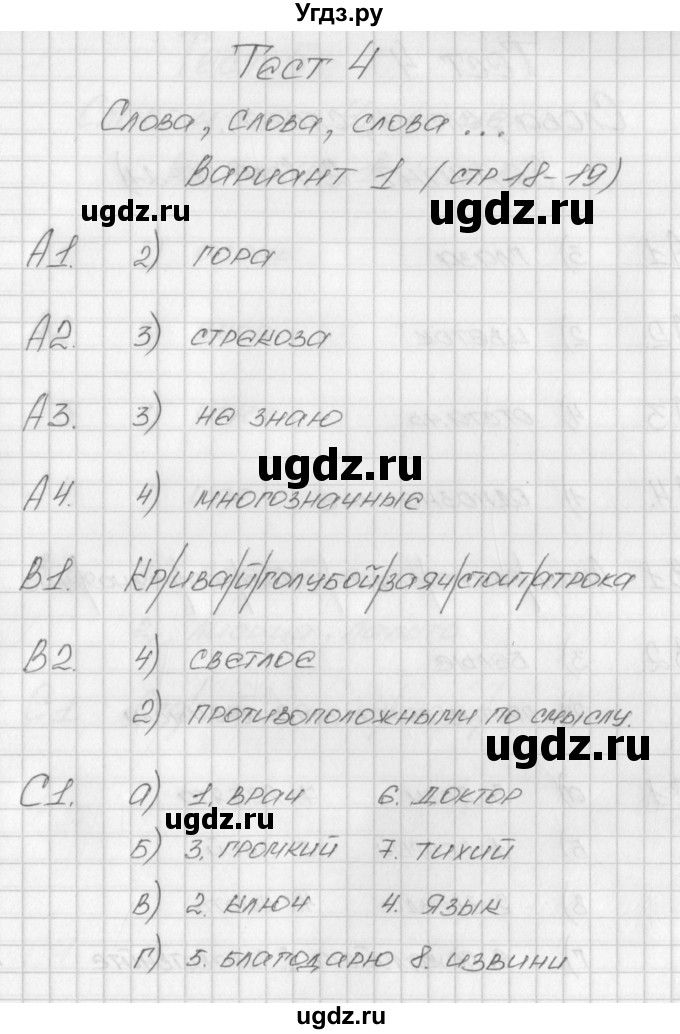 Угдз.ру
Тест 4
Слова, слова, слова ...
Вариант 1 (стр 18-19)
ugdz.ru ugdz.ru
А1. 2) гора
А2. 3) стрекоза
А3. 3) не знаю
ugdz.ru
А4. 4) многозначные
В1. Кр/ива/й/голубой/заяч/стоит/атрока
В2. 4) светлое
2) противоположными по смыслу.
ugdz.ru
С1. а) 1. врач 6. доктор
ugdz.ru
Б) 3. громкий 7. тихий
В) 2. ключ 4. язык
Г) 5. благодарю 8. извини
ugdz.ru